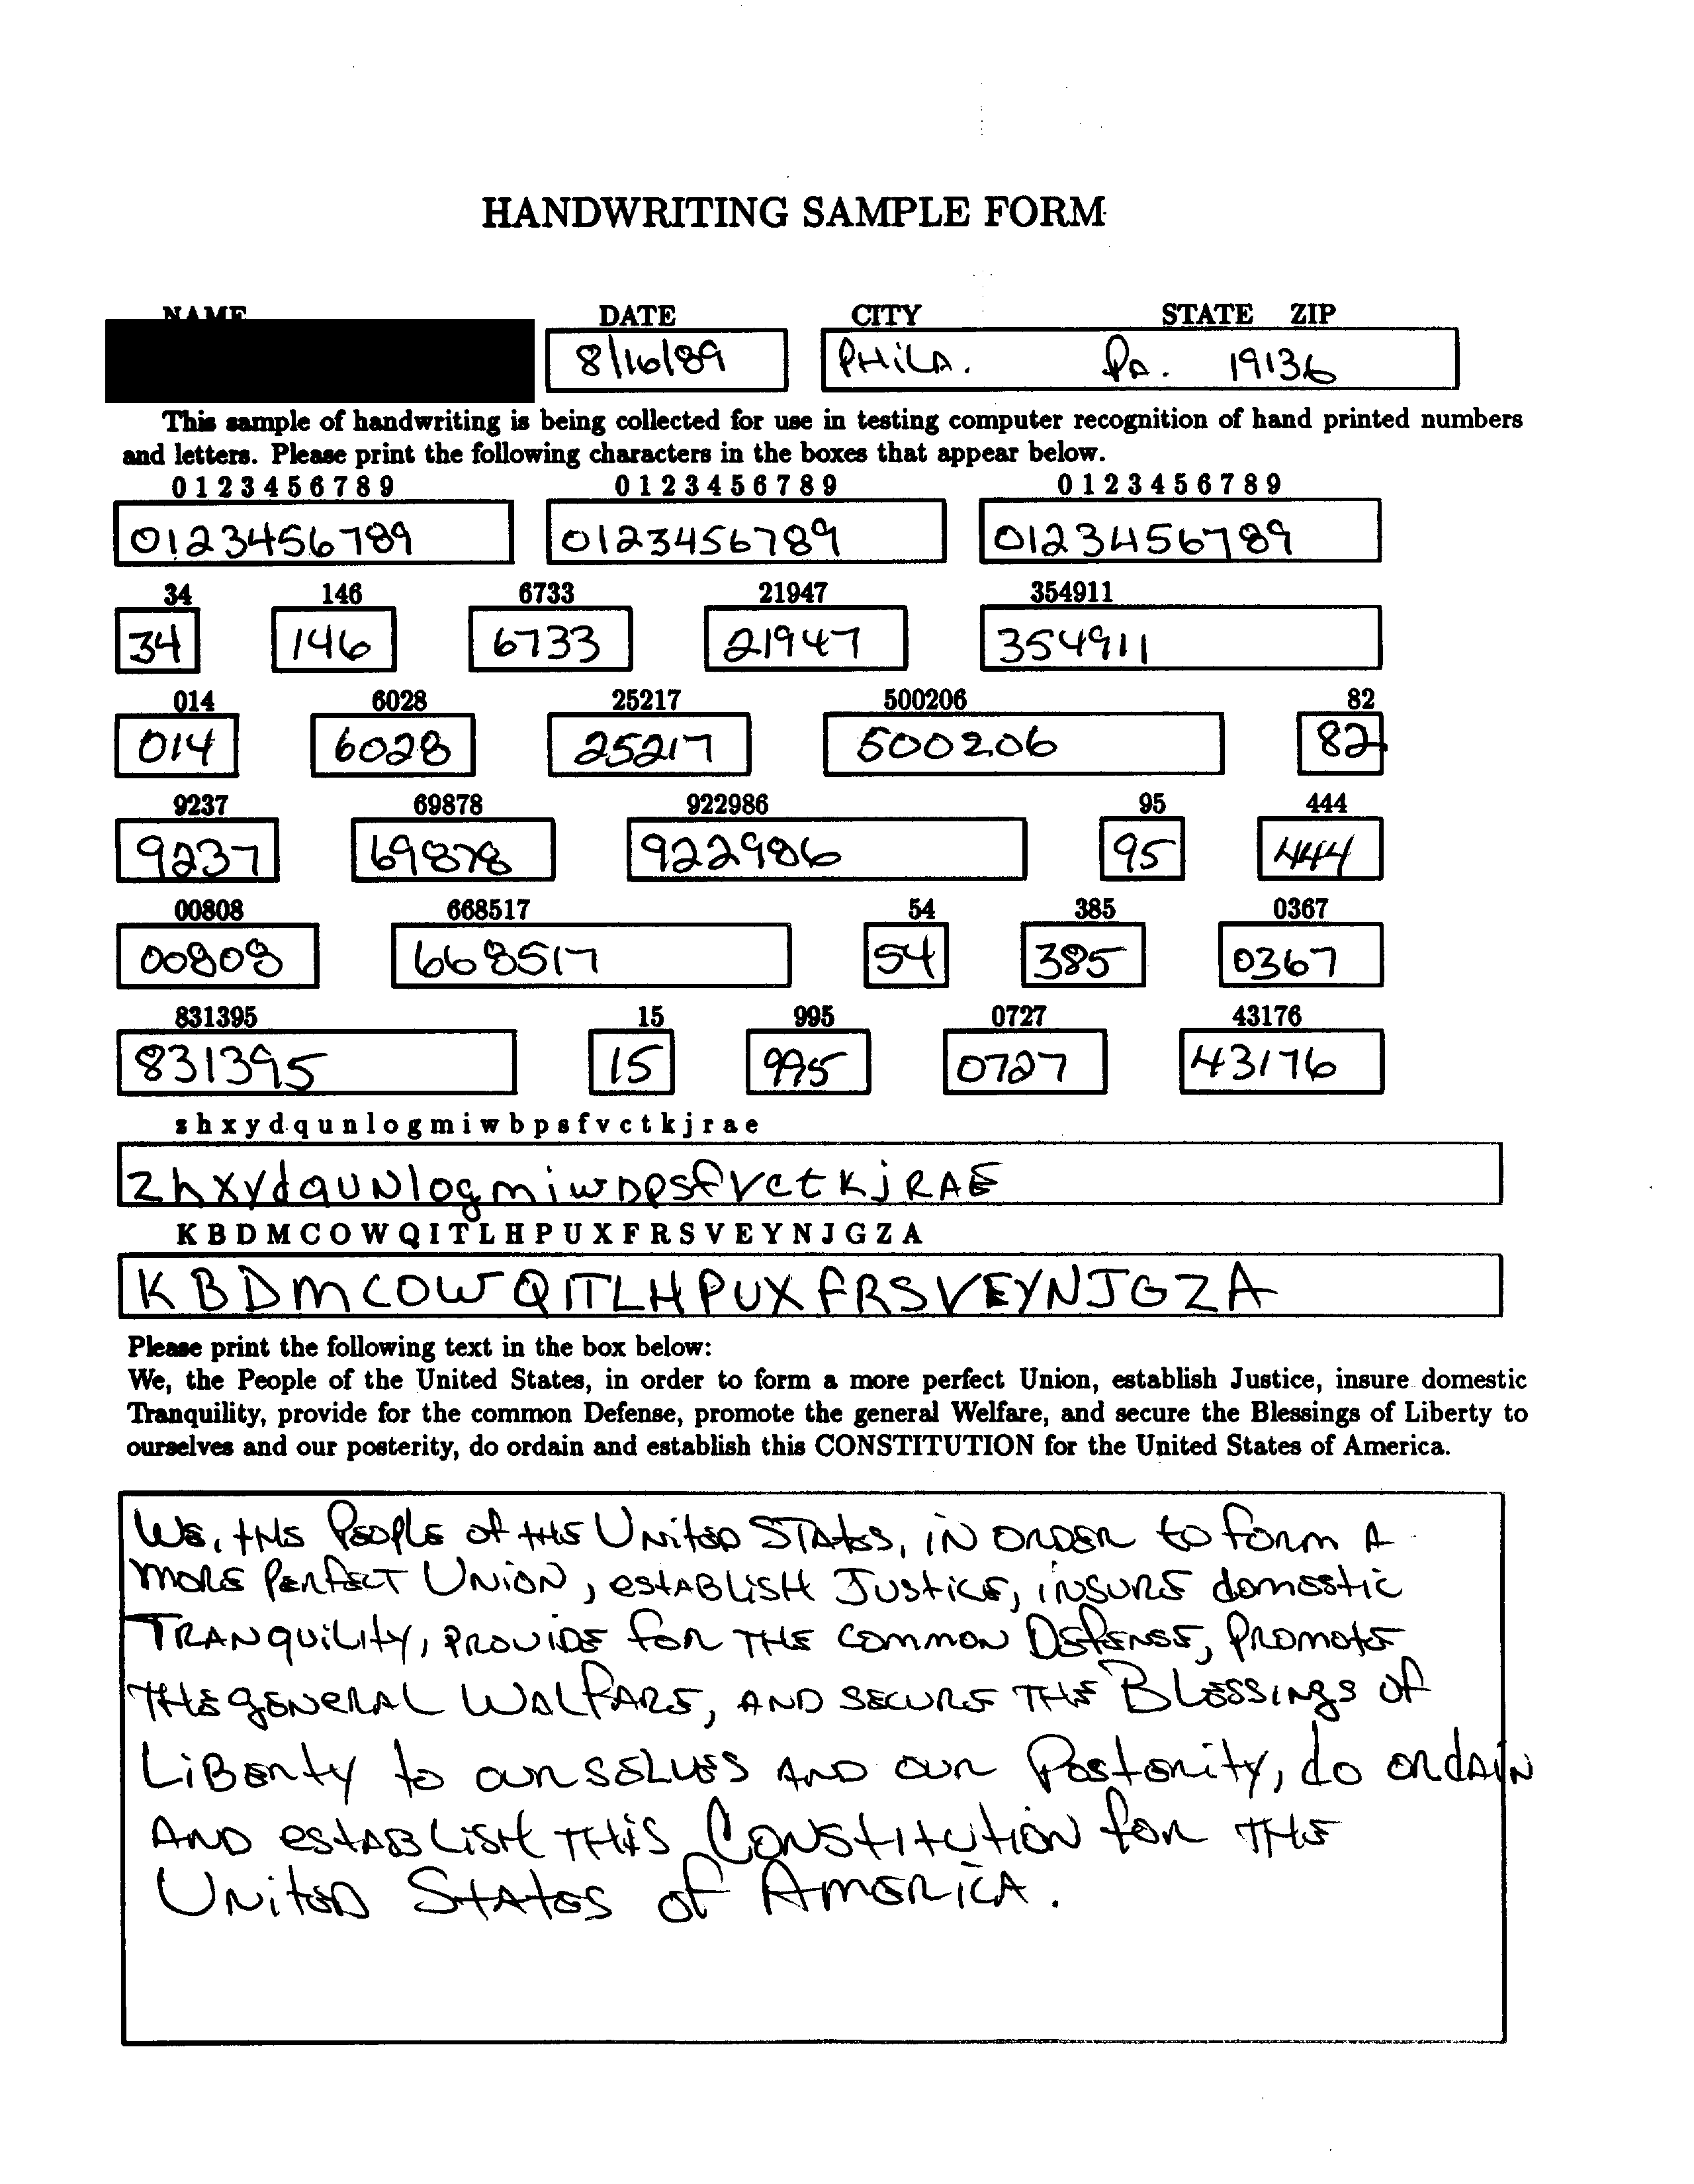 HANDWRITING SAMPLE FORM
NAME DATE CITY STATE ZIP
8/16/89 PHILA. PA. 19136
This sample of handwriting is being collected for use in testing computer recognition of hand printed numbers
and letters. Please print the following characters in the boxes that appear below.
0 1 2 3 4 5 6 7 8 9 0 1 2 3 4 5 6 7 8 9 0 1 2 3 4 5 6 7 8 9
0123456789 0123456789 0123456789
34 146 6733 21947 354911
34 146 6733 21947 354911
014 6028 25217 500206 82
014 6028 25217 500206 82
9237 69878 922986 95 444
9237 69878 922986 95 444
00808 668517 54 385 0367
00808 668517 54 385 0367
831395 15 995 0727 43176
831395 15 995 0727 43176
z h x y d q u n l o g m i w b p s f v c t k j r a e
zhxydqUNlogmiwbpsfvctkjRAE
K B D M C O W Q I T L H P U X F R S V E Y N J G Z A
KBDMCOWQITLHPUXFRSVEYNJGZA
Please print the following text in the box below:
We, the People of the United States, in order to form a more perfect Union, establish Justice, insure domestic
Tranquility, provide for the common Defense, promote the general Welfare, and secure the Blessings of Liberty to
ourselves and our posterity, do ordain and establish this CONSTITUTION for the United States of America.
WE, tHE PEOPLE of tHE UNitED STAtES, iN ORDER to foRm A
moRE PERfECT UNiON, estABLiSH JUStiCE, iNSURE domEstic
TRANquiLity, PROVIDE foR THE COMMON DEfENSE, PRomotE
THE gENERAL WALfARE, AND SECURE THE BLESSiNgS of
LiBERty to ouRSELVES AND OUR PostERity, do oRdAiN
AND estABLiSH THiS CONStitutiON foR THE
UNitED StAtES of AmERiCA.